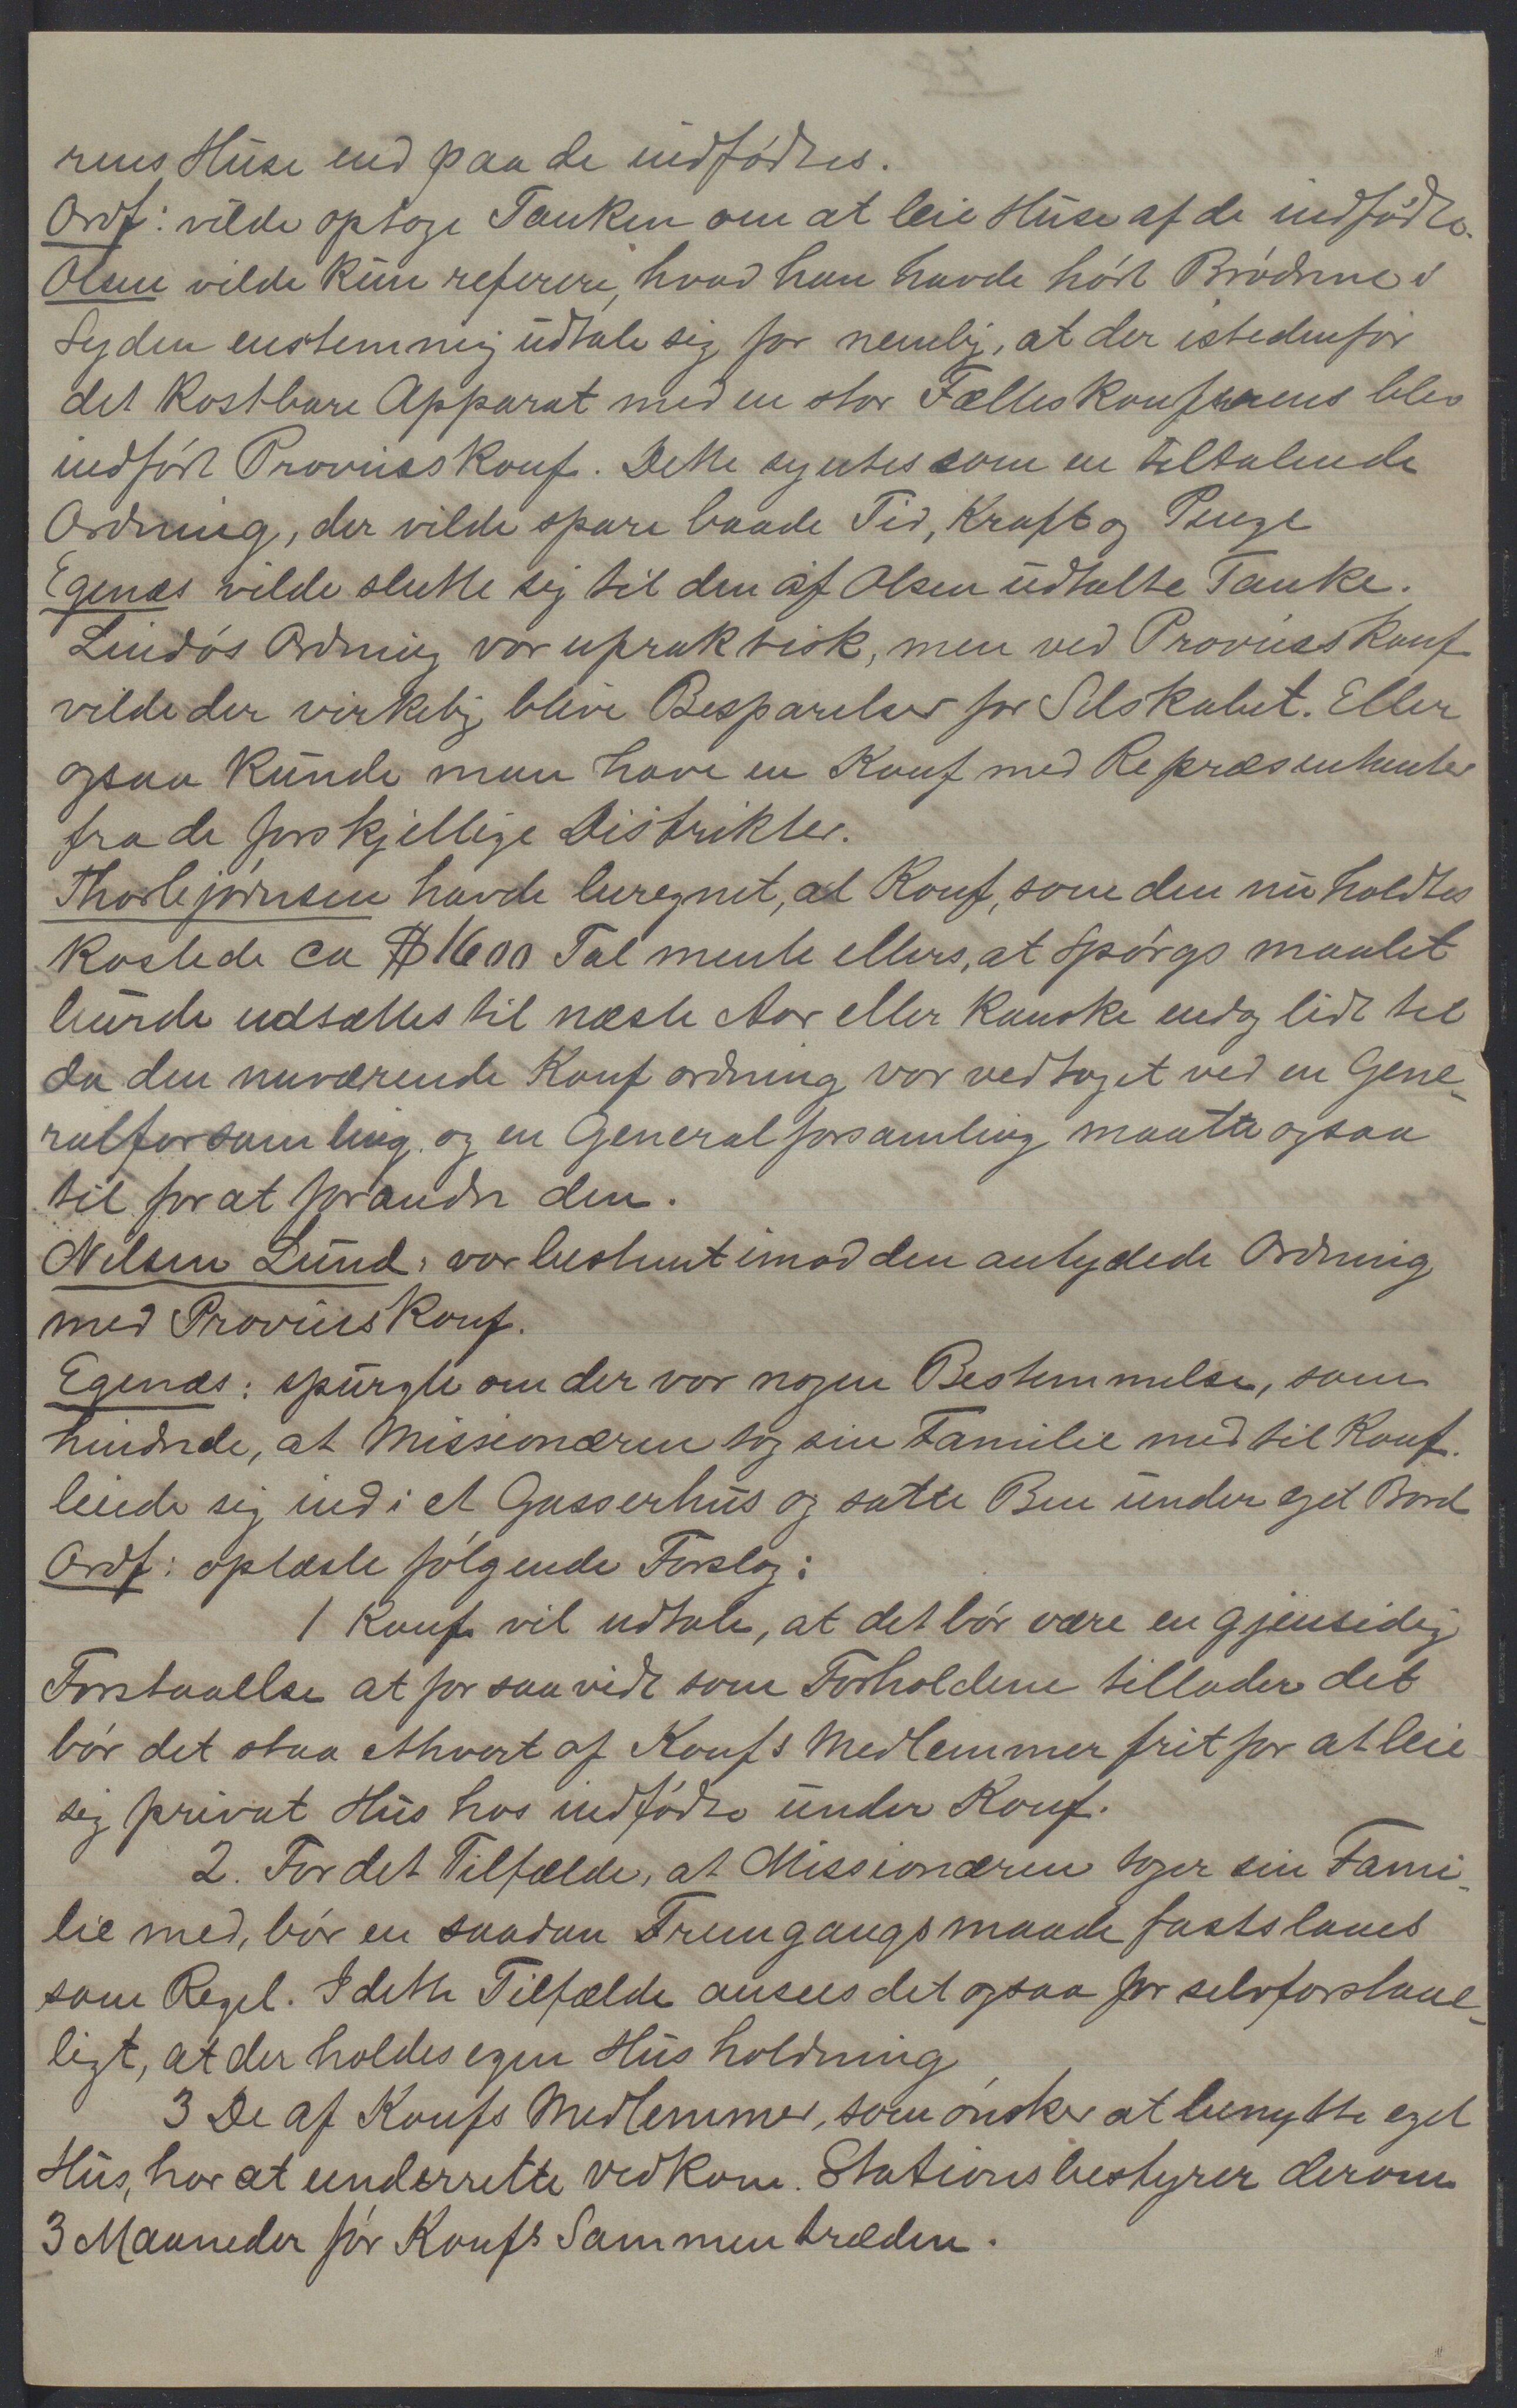 rens Huse end paa de indfødtes.
Ordf: vilde optage Tanken om at leie Huse af de indfødte.
Olsen vilde kun referere, hvad han havde hørt Brødrene i
Syden enstemmig udtale sig for nemlig, at der istedenfor
det kostbare Apparat med en stor Fælleskonferens blev
indført Provinskonf. Dette syntes som en tiltalende
Ordning, der vilde spare baade Tid, Kraft og Penge
Egenæs vilde slutte sig til den af Olsen udtalte Tanke.
Lindøs Ordning var upraktisk, men ved Provinskonf
vilde der virkelig blive Besparelser for Selskabet. Eller
ogsaa kunde man have en Konf med Repræsentanter
fra de forskjellige Distrikter.
Thorbjørnsen havde beregnet, at Konf, som den nu holdtes
kostede ca $1600 Tal mente ellers, at Spørgsmaalet
burde udsættes til næste Aar eller kanske endog lidt til
da den nuværende Konfordning var vedtaget ved en Gene-
ralforsamling og en Generalforsamling maatte ogsaa
til for at forandre den.
Nilsen Lund: var bestemt imod den antydede Ordning
med Provinskonf.
Egenæs: spurgte om der var nogen Bestemmelse, som
hindrede, at Missionæren tog sin Familie med til Konf.
leiede sig ind i et Gasserhus og satte Ben under eget Bord
Ordf: oplæste følgende Forslag:
1 Konf vil udtale, at det bør være en gjensidig
Forstaaelse at for saavidt som Forholdene tillader det
bør det staa ethvert af Konfs Medlemmer frit for at leie
sig privat Hus hos indfødte under Konf.
2. For det Tilfælde, at Missionæren tager sin Fami-
lie med, bør en saadan Fremgangsmaade fastslaaes
som Regel. I dette Tilfælde ansees det ogsaa for selvforstaae-
ligt, at der holdes egen Husholdning
3 De af Konfs Medlemmer, som ønsker at benytte eget
Hus, har at underrette vedkom. Stationsbestyrer derom
3 Maaneder før Konfs Sammentræden.